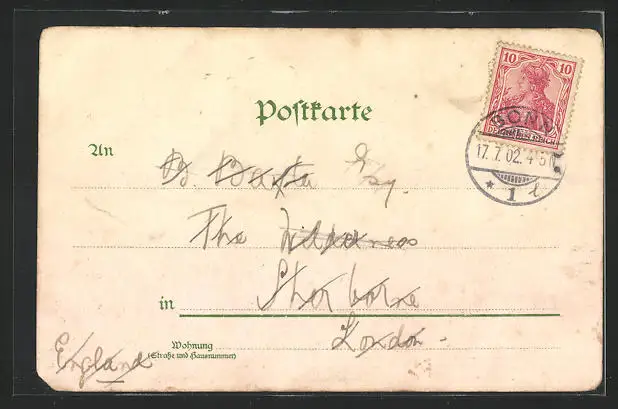 10 10
DEUTSCHES REICH
BONN
17.7.02.4-5N.
* 1 l
Postkarte
An
Esq.
The Wilderness
in Sherborne
London.
Wohnung
(Straße und Hausnummer)
England